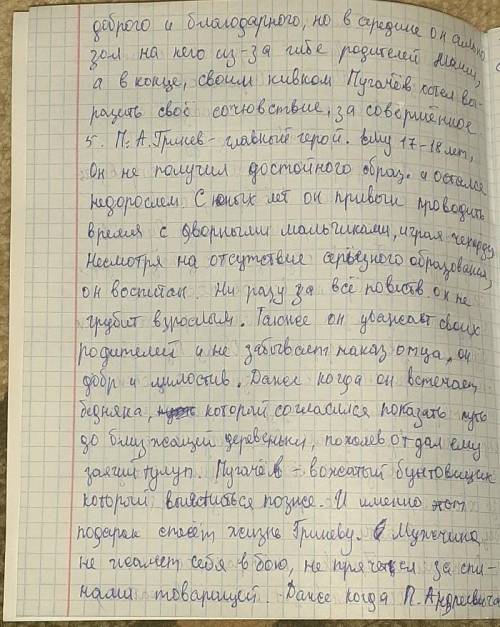 доброго и благодарного, но в середине он сильно
зол на него из-за гибе родителей Маши,
а в конце, своим кивком Пугачёв хотел вы-
разить своё сочювствие, за совершённое
5. П. А. Гринев - главный герой. Ему 17-18 лет,
Он не получил достойного образ. и остался
недорослем. С юных лет он привык проводить
время с дворными мальчиками, играя чехорду
Несмотря на отсутствие серьёзного образования,
он воспитан. Ни разу за всё повиств он не
грубит взрослым. Также он уважает своих
родителей и не забывает наказ отца, он
добр и милостив. Даже когда он встречает
бедняка, который согласился показать путь
до ближайщий деревеньки, пожалев отдал ему
заячий тулуп. Пугачёв - вожатый бунтовщик
который выяснться позже. И именно этот
подарок спасёт жизнь Гриневу. Мужчина
не жалеет себя в бою, не прячется за спи-
нами товарищей. Даже когда П. Андреевича